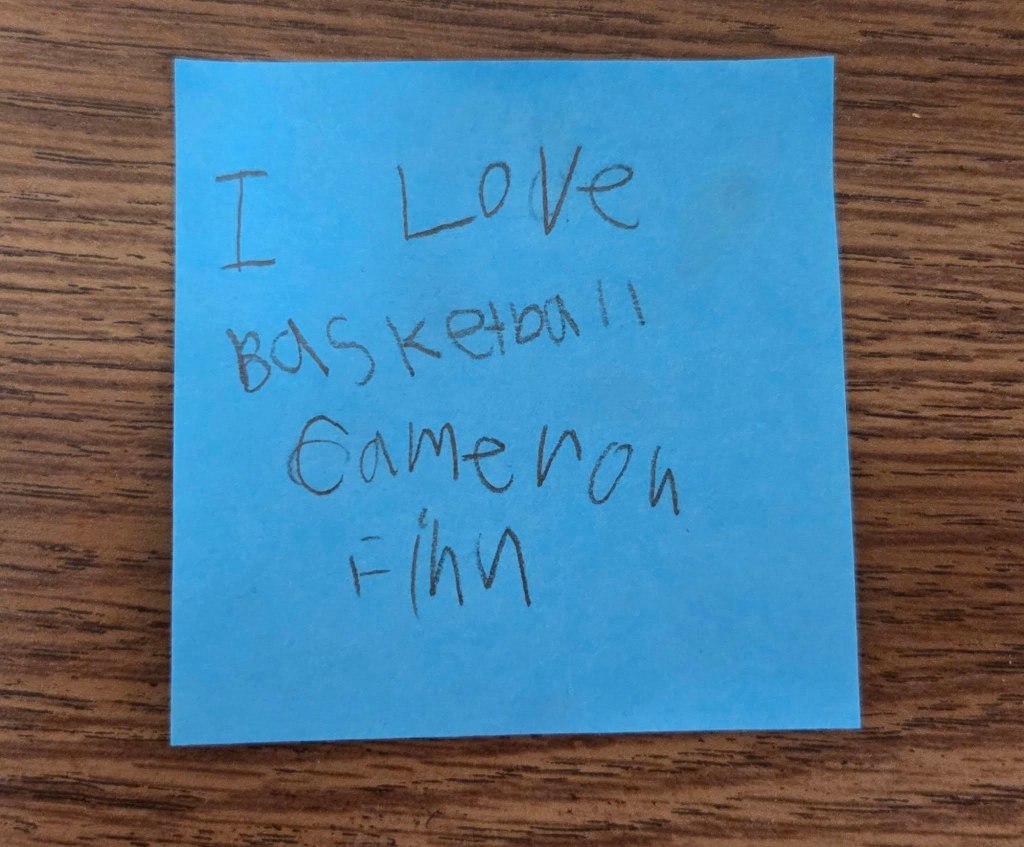 I Love
Basketball
Cameron
Finn